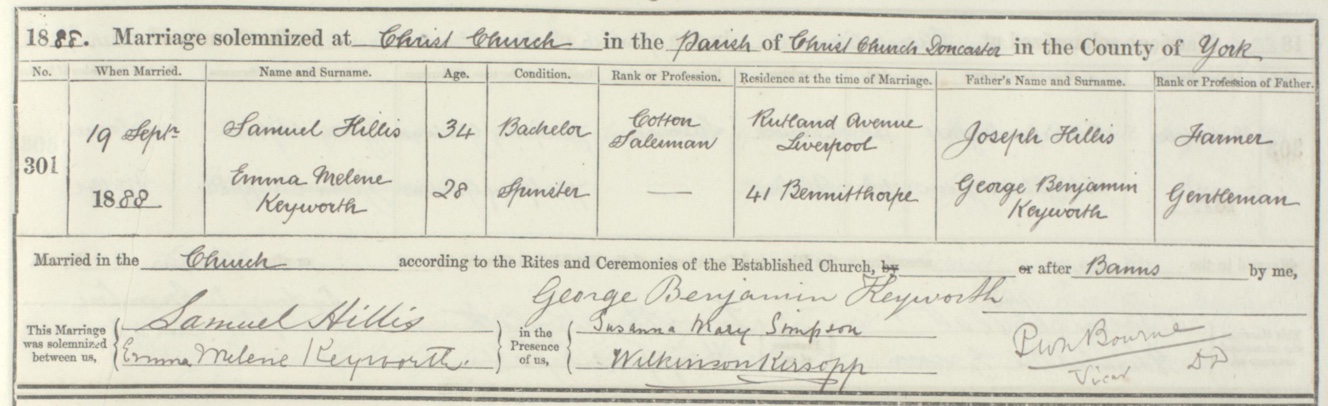 1888. Marriage solemnized at Christ Church in the Parish of Christ Church Doncaster in the County of York
No. When Married. Name and Surname. Age. Condition. Rank or Profession. Residence at the time of Marriage. Father's Name and Surname. Rank or Profession of Father.
301 19 Septr 1888 Samuel Hillis 34 Bachelor Cotton Salesman Rutland Avenue Liverpool Joseph Hillis Farmer
Emma Melene Keyworth 28 Spinster — 41 Bennitthorpe George Benjamin Keyworth Gentleman
Married in the Church according to the Rites and Ceremonies of the Established Church, by or after Banns by me,
George Benjamin Keyworth
This Marriage was solemnized between us, Samuel Hillis
Emma Melene Keyworth.
in the Presence of us, Susanna Mary Simpson
Wilkinson Kirsopp
Bourne
Vicar DD